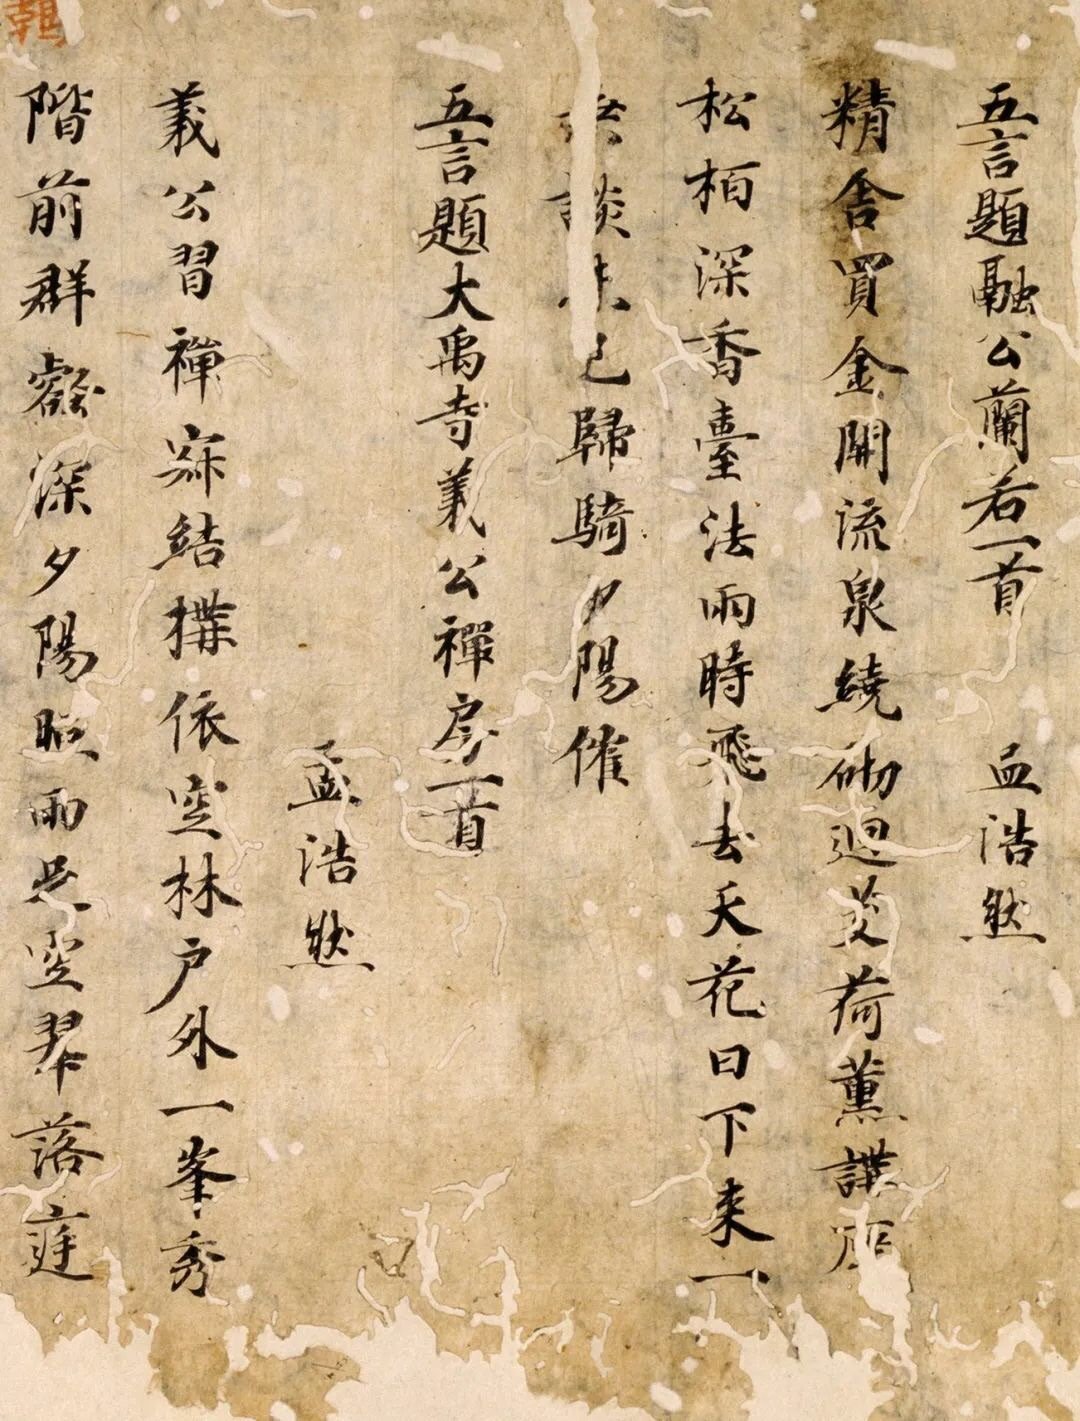 五言題融公蘭若一首 孟浩然
精舍買金開流泉繞砌迴芰荷薰講座
松柏深香臺法雨時飛去天花日下来一
談未已歸騎夕陽催
五言題大禹寺義公禪房一首
孟浩然
義公習禪寂結搆依空林户外一峯秀
階前群壑深夕陽照雨足空翠落庭